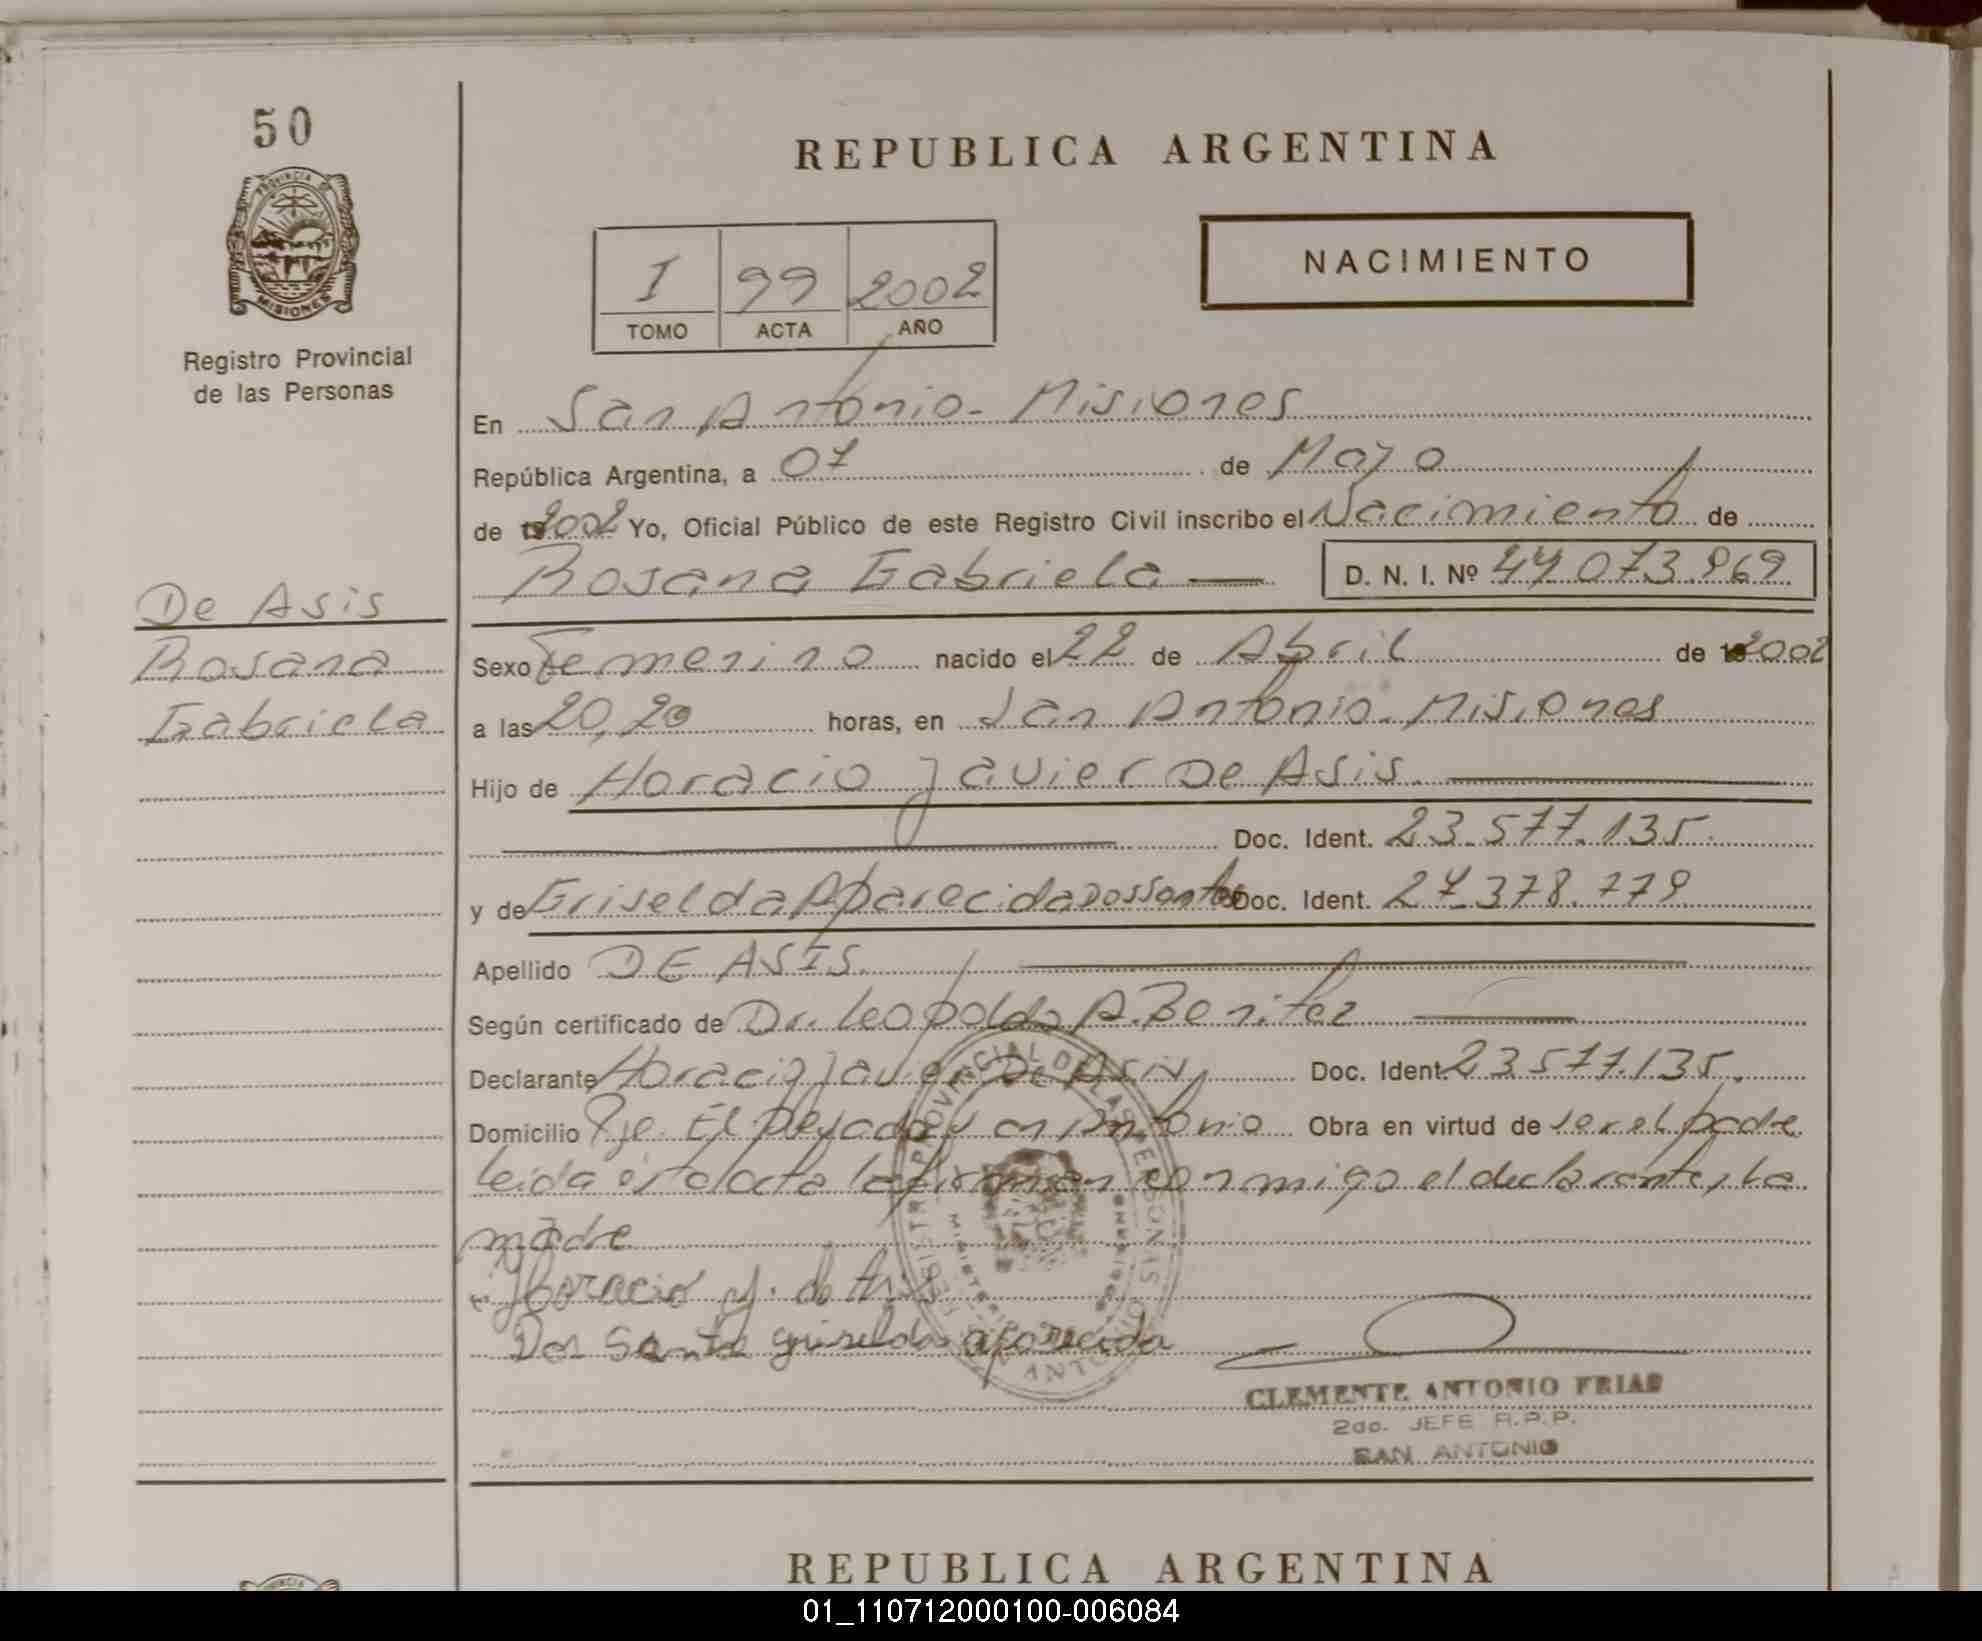 50
PROVINCIA DE
MISIONES
Registro Provincial
de las Personas
REPUBLICA ARGENTINA
I 99 2002
TOMO ACTA AÑO
NACIMIENTO
En San Antonio - Misiones
República Argentina, a 07 de Mayo
de 2002 Yo, Oficial Público de este Registro Civil inscribo el Nacimiento de
Rosana Gabriela D. N. I. Nº 44.073.969
De Asis
Rosana
Gabriela
Sexo Femenino nacido el 22 de Abril de 2002
a las 20,20 horas, en San Antonio. Misiones
Hijo de Horacio Javier De Asis.
Doc. Ident. 23.577.135.
y de Griselda Aparecida Dos Santos Doc. Ident. 27.378.779
Apellido DE ASIS.
Según certificado de Dr. Leopoldo A. Benitez
Declarante Horacio Javier De Asis, Doc. Ident. 23.577.135.
Domicilio Pje. El Pleyado San Antonio Obra en virtud de ser el padre
leida ésta acta la firman conmigo el declarante, la
madre
Horacio J. de Asis
Dos Santos griselda aparecida
CLEMENTE ANTONIO FRIAS
2do. JEFE R.P.P.
SAN ANTONIO
REPUBLICA ARGENTINA
01_110712000100-006084